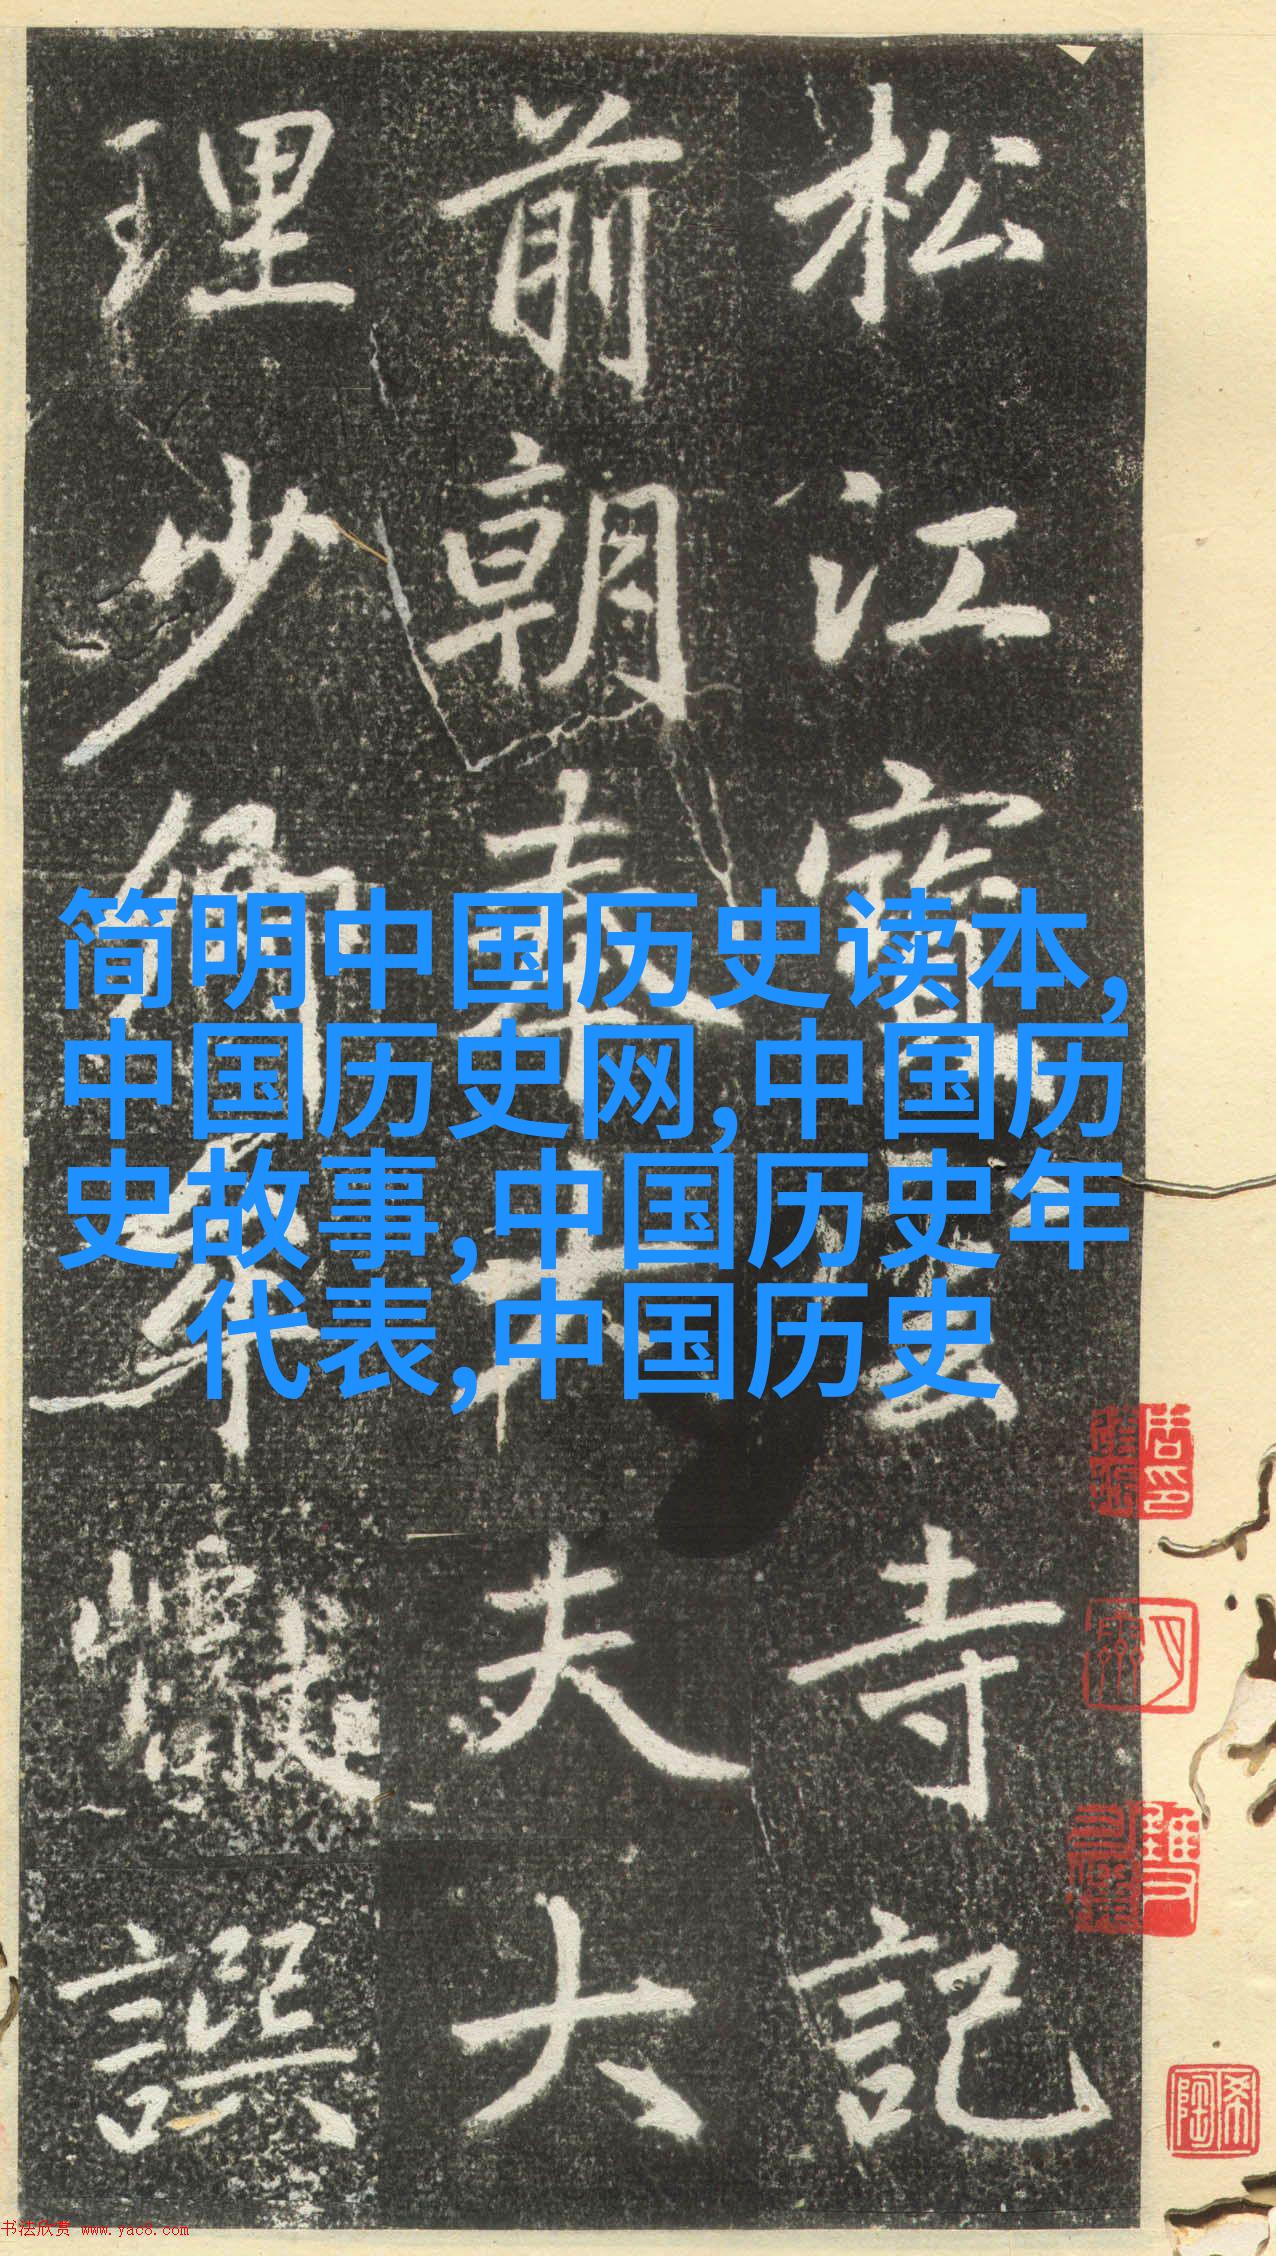 松江寶雲寺記
前朝奉大夫大
理少卿牟巘譔
简明中国历史读本,
中国历史网,中国历
史故事,中国历史年
代表,中国历史
希陶
书法欣赏 www.yac8.com